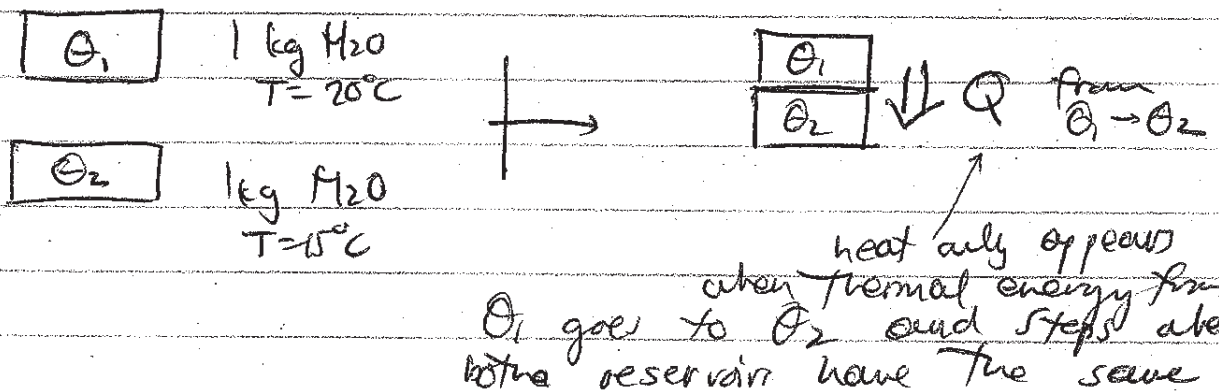 Θ₁ 1 kg H₂O
T = 20°C
Θ₂ 1 kg H₂O
T = 15°C
Θ₁
Θ₂
Q from
Θ₁ → Θ₂
heat only appears
when thermal energy from
Θ₁ goes to Θ₂ and stops
both reservoirs have the same